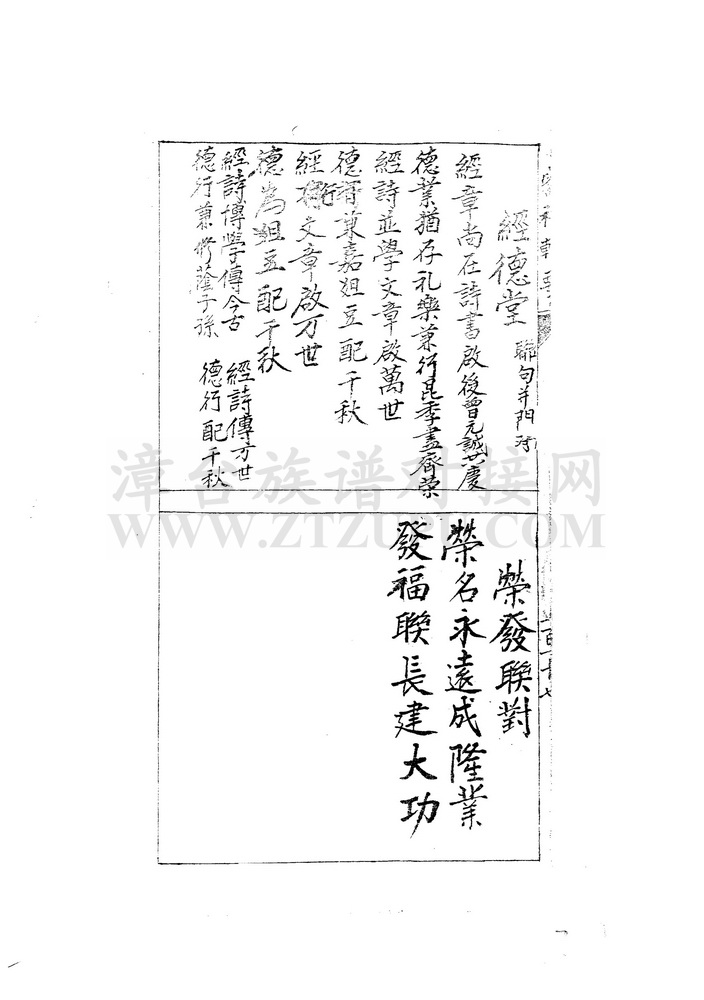 經德堂 聯句并門对
經章尚在詩書啟後曾元誠必慶
德業猶存礼樂兼行昆季盡齊榮
經詩並學文章啟萬世
德行兼嘉俎豆配千秋
經 文章啟万世
德為俎豆配千秋
經詩博學傳今古
德行兼修蔭子孫
經詩傳万世
德行配千秋
榮發聯對
榮名永遠成隆業
發福聯長建大功
漳台族谱对接网